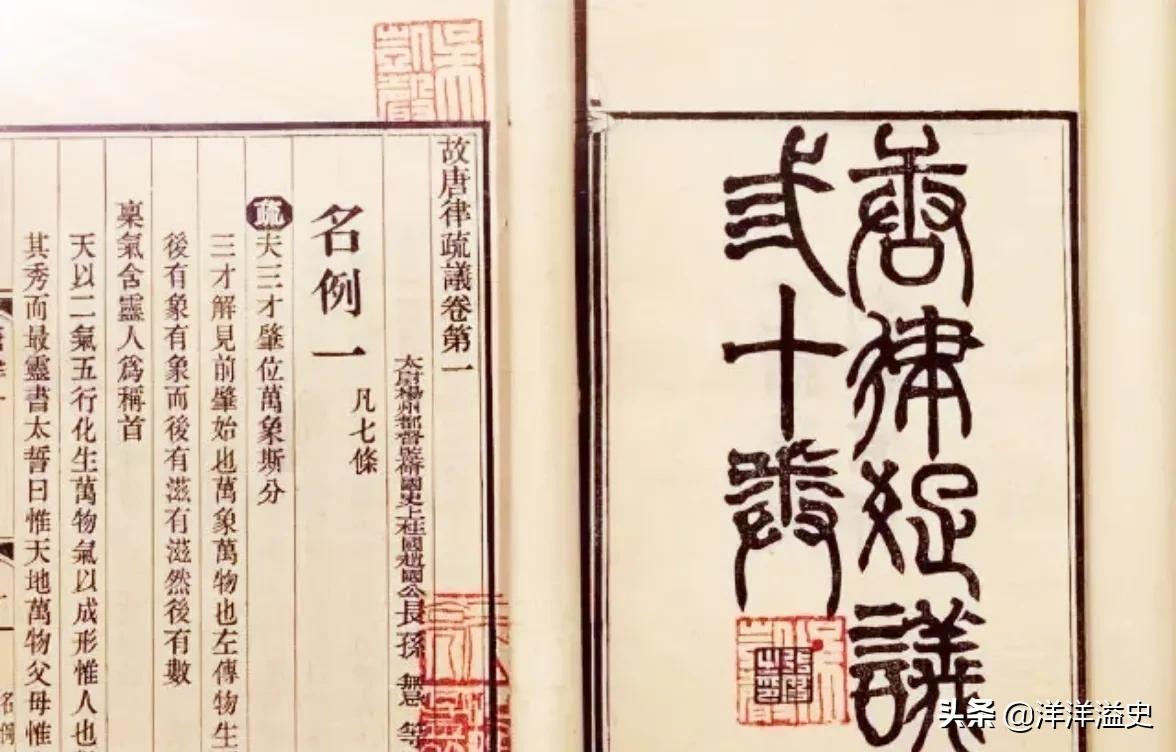 唐律疏議
弎十卷
吳凱聲
故唐律疏議卷第一
太尉揚州都督監脩國史上柱國趙國公長孫無忌等
名例一 凡七條
疏夫三才肇位萬象斯分
三才解見前肇始也萬象萬物也左傳物生
後有象有象而後有滋有滋然後有數
稟氣含靈人爲稱首
天以二氣五行化生萬物氣以成形惟人也
其秀而最靈書太誓曰惟天地萬物父母惟
名例
头条 @洋洋溢史